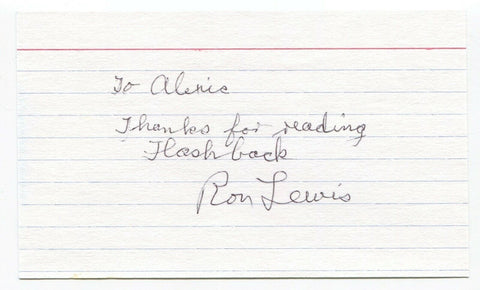 To Alexie
Thanks for reading
Flashback
Ron Lewis